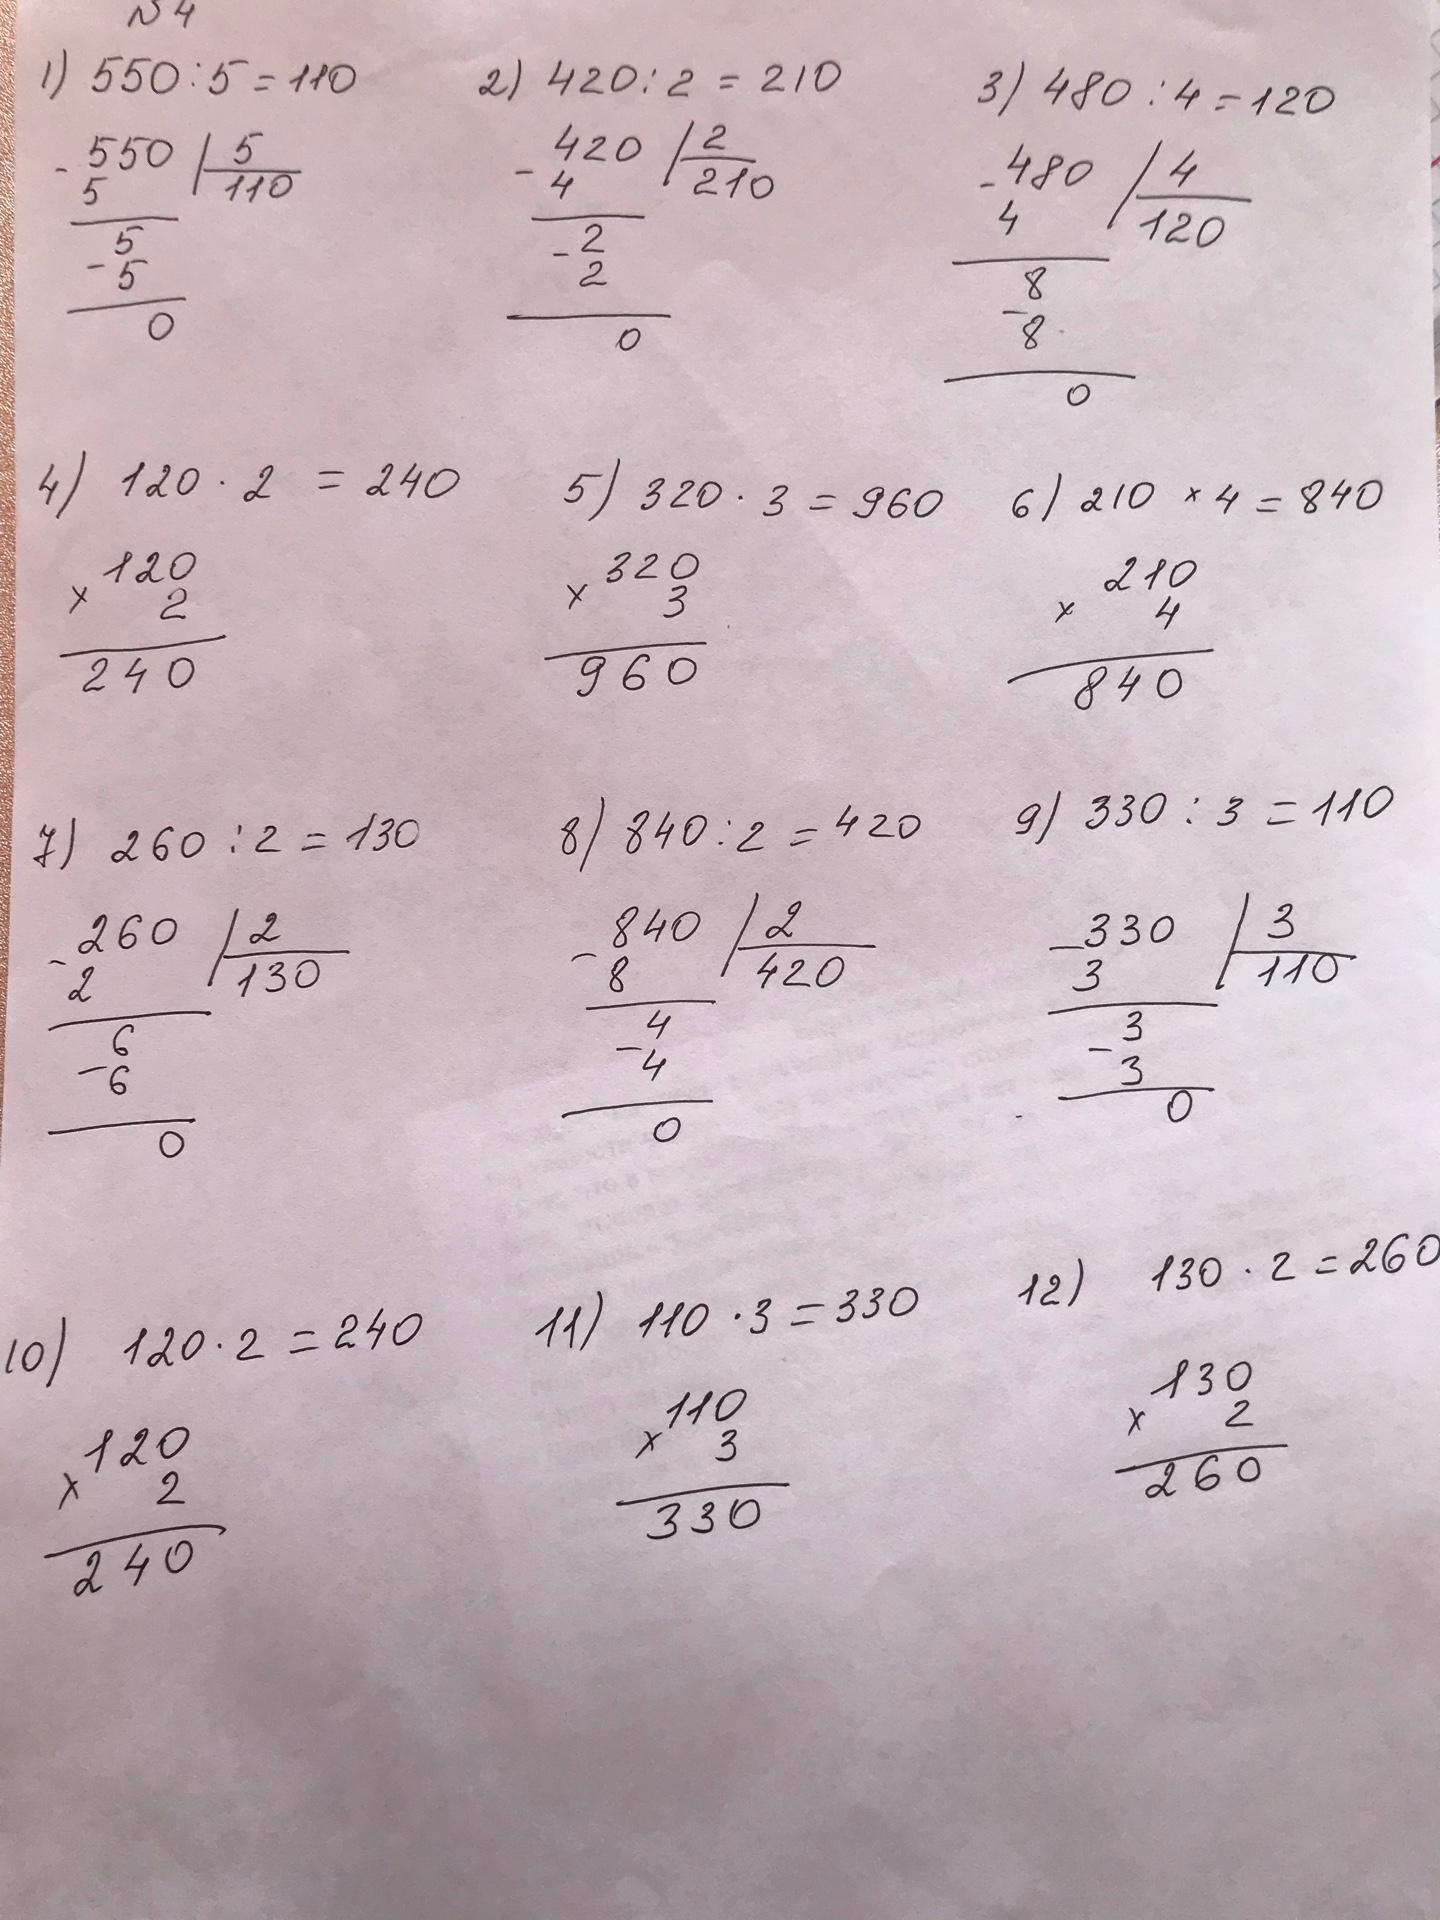 N 4
1) 550 : 5 = 110
- 550 | 5
5 110
5
- 5
0
2) 420 : 2 = 210
- 420 | 2
4 210
- 2
2
0
3) 480 : 4 = 120
- 480 | 4
4 120
8
- 8
0
4) 120 · 2 = 240
120
x 2
240
5) 320 · 3 = 960
320
x 3
960
6) 210 x 4 = 840
210
x 4
840
7) 260 : 2 = 130
- 260 | 2
2 130
6
- 6
0
8) 840 : 2 = 420
- 840 | 2
8 420
4
- 4
0
9) 330 : 3 = 110
- 330 | 3
3 110
- 3
3
0
10) 120 · 2 = 240
120
x 2
240
11) 110 · 3 = 330
110
x 3
330
12) 130 · 2 = 260
130
x 2
260